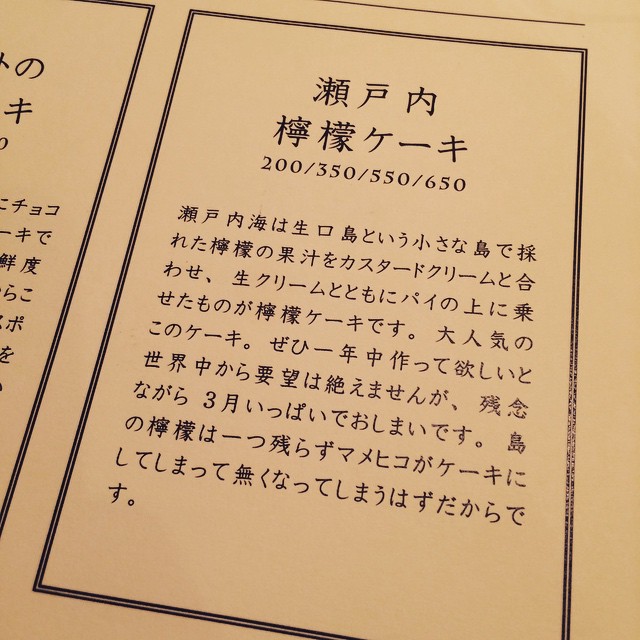 瀬戸内
檸檬ケーキ
200/350/550/650
瀬戸内海は生口島という小さな島で採
れた檸檬の果汁をカスタードクリームと合
わせ、生クリームとともにパイの上に乗
せたものが檸檬ケーキです。大人気の
このケーキ。ぜひ一年中作って欲しいと
世界中から要望は絶えませんが、残念
ながら 3月いっぱいでおしまいです。島
の檸檬は一つ残らずマメヒコがケーキに
してしまって無くなってしまうはずだからで
す。
の
キ
0
にチョコ
ーキで
鮮度
らこ
スポ
を